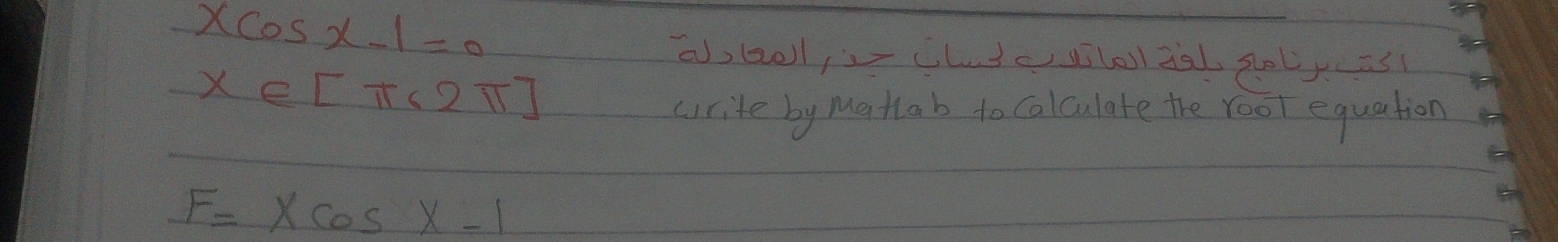 x cos x - 1 = 0
اكتب برنامج بلغة الماتلاب لحساب جذر المعادلة
x ∈ [ π, 2π ]
write by Matlab to calculate the root equation
F = x cos x - 1